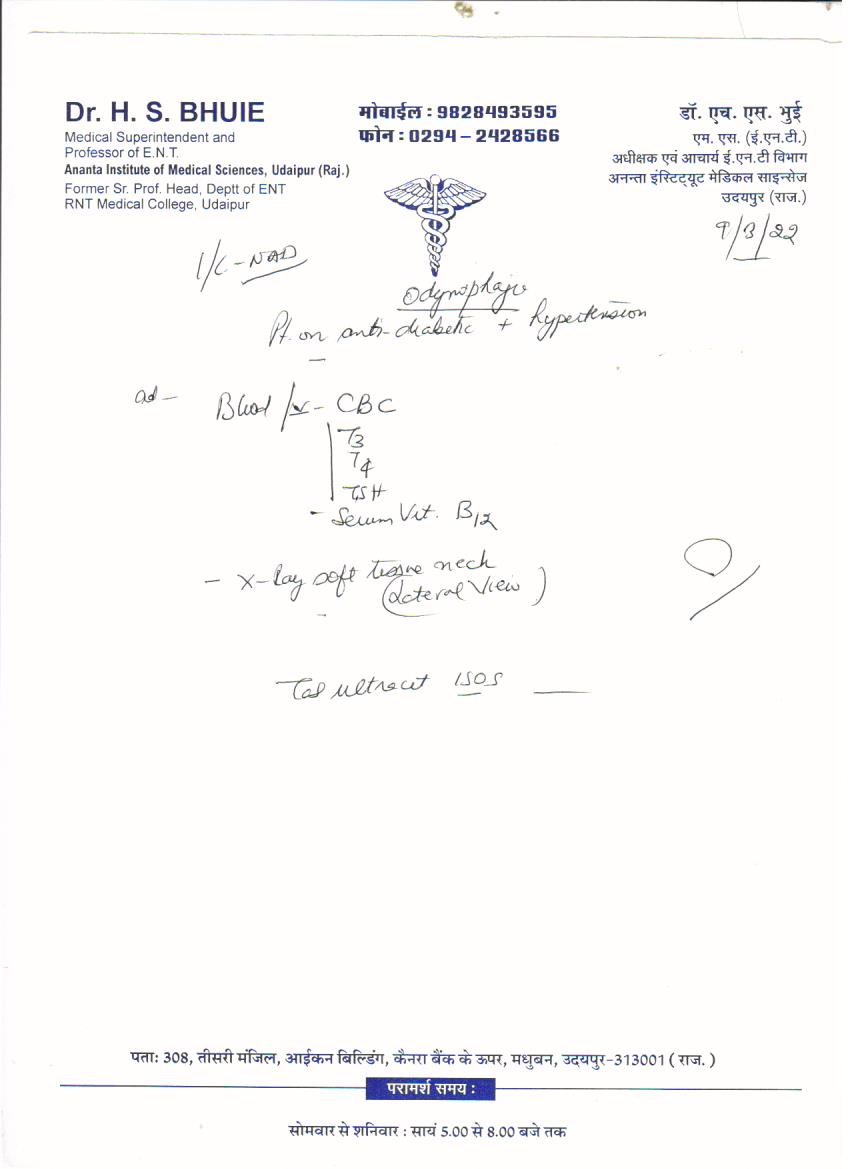 Dr. H. S. BHUIE
Medical Superintendent and
Professor of E.N.T.
Ananta Institute of Medical Sciences, Udaipur (Raj.)
Former Sr. Prof. Head, Deptt of ENT
RNT Medical College, Udaipur
मोबाईल : 9828493595
फोन : 0294 – 2428566
डॉ. एच. एस. भुई
एम. एस. (ई.एन.टी.)
अधीक्षक एवं आचार्य ई.एन.टी विभाग
अनन्ता इंस्टिट्यूट मेडिकल साइन्सेज
उदयपुर (राज.)
9/3/22
I/L - NAD
Odynophagia
Pt. on anti-diabetic + hypertension
ad -
Blood - CBC
T3
T4
TSH
- Serum Vit. B12
- X-Ray soft tissue neck
(Lateral View)
Tab ultracet 1SOS
पताः 308, तीसरी मंजिल, आईकन बिल्डिंग, कैनरा बैंक के ऊपर, मधुबन, उदयपुर-313001 ( राज. )
परामर्श समय :
सोमवार से शनिवार : सायं 5.00 से 8.00 बजे तक